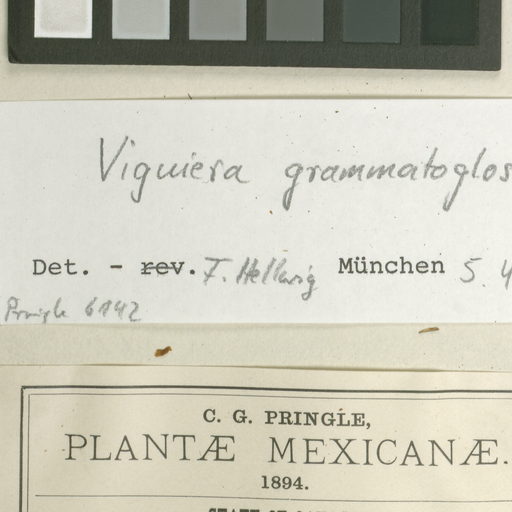 Viguiera grammatoglos
Det. - rev. F. Hellwig München 5. 4
Pringle 6142
C. G. PRINGLE,
PLANTÆ MEXICANÆ.
1894.
STATE OF